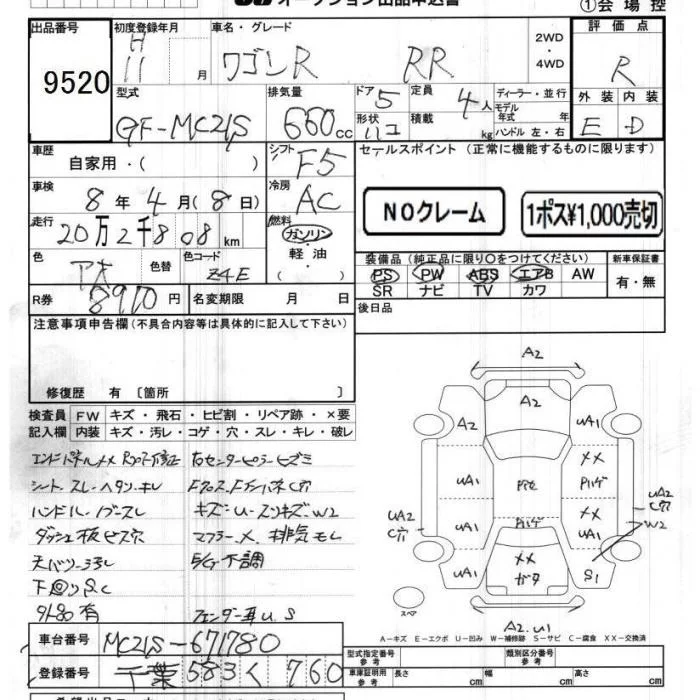 オークション出品申込書
①会場控
出品番号 9520
初度登録年月 H 11 月
車名・グレード ワゴンR RR
2WD・4WD
評価点 R
型式 GF-MC21S
排気量 660cc
ドア 5
形状
定員 4人
積載 kg
ディーラー・並行
モデル年式 年
ハンドル 左・右
外装 E
内装 D
車歴 自家用・( )
シフト F5
セールスポイント (正常に機能するものに限ります)
車検 8年4月(8日)
冷房 AC
NOクレーム
1ポス¥1,000売切
走行 20万2千808km
燃料 ガソリン・軽油・( )
色
色替
色コード Z4E
装備品 (純正品に限り○をつけてください)
新車保証書
PS PW ABS エアB AW
有・無
SR ナビ TV カワ
R券 8910円
名変期限 月 日
後日品
注意事項申告欄(不具合内容等は具体的に記入して下さい)
修復歴 有〔箇所 〕
検査員記入欄
FW キズ・飛石・ヒビ割・リペア跡・×要
内装 キズ・汚レ・コゲ・穴・スレ・キレ・破レ
右センターピラーヒズミ
シート スレ ヘタリ キレ
キズ・U・スリキズ W2
マフラーX 排気モレ
E/G不調
下回りS.C
外品有
フェンダー耳U.S
A2
A2
UA1
UA1
UA1
XX
XX
UA1
UA1
UA2
C穴
UA2
C穴
W2
UA1
XX
S1
スペア
A2.U1
A-キズ E-エクボ U-凹み W-補修跡 S-サビ C-腐食 XX-交換済
車台番号 MC21S-671780
登録番号 千葉 583 く 760
型式指定番号 参考
類別区分番号 参考
車庫証明用 参考
長さ cm
幅 cm
高さ cm